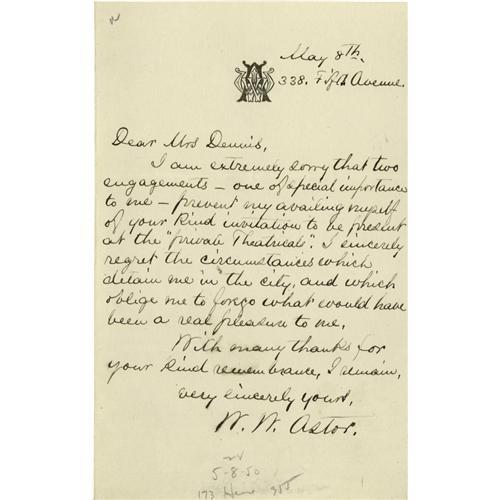 May 8th.
338. Fifth Avenue.
Dear Mrs Dennis,
I am extremely sorry that two
engagements – one of special importance
to me – prevent my availing myself
of your kind invitation to be present
at the "private Theatricals". I sincerely
regret the circumstances which
detain me in the city, and which
oblige me to forego what would have
been a real pleasure to me.
With many thanks for
your kind remembrance, I remain,
very sincerely yours,
W. W. Astor.
5-8-50
173